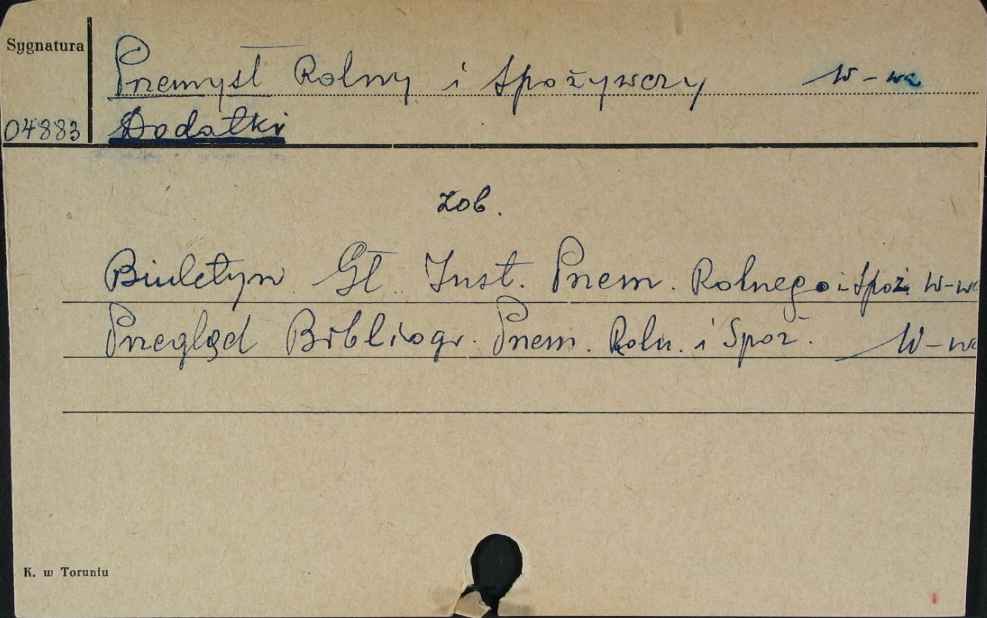 Sygnatura
Przemysł Rolny i Spożywczy W-wa
04883
Dodatki
zob.
Biuletyn Gł. Inst. Przem. Rolnego i Spoż. W-wa
Przegląd Bibliogr. Przem. Roln. i Spoż. W-wa
K. w Toruniu